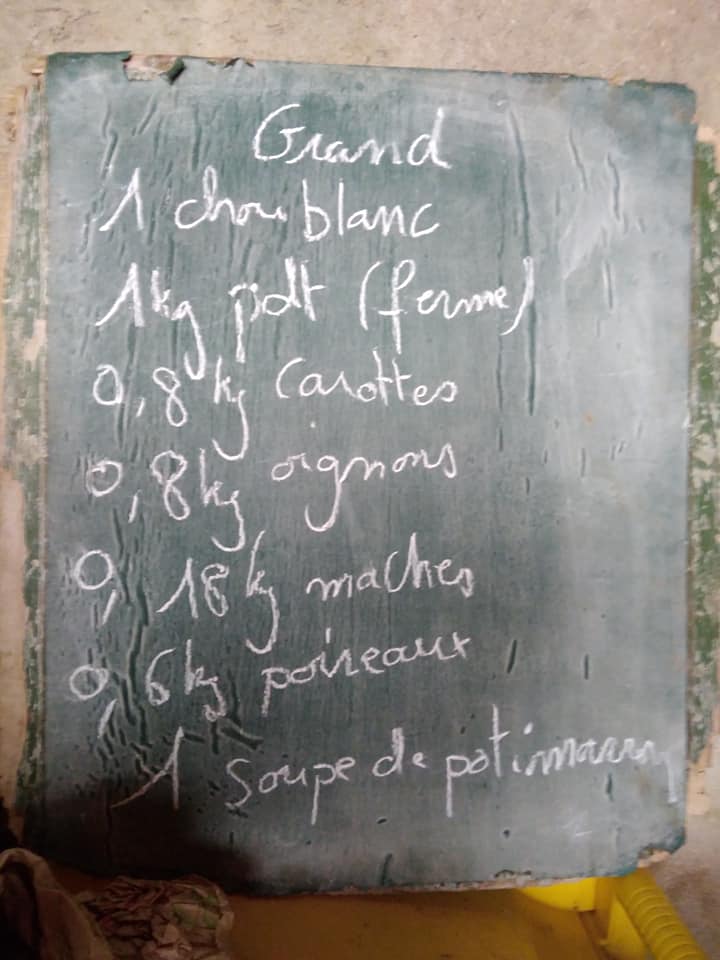 Grand
1 chou blanc
1kg pdt (ferme)
0,8 kg Carottes
0,8kg oignons
0,18kg maches
0,6kg poireaux
1 soupe de potimarron